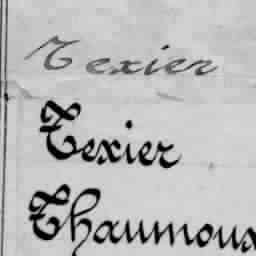 Texier
Texier
Thaumoux